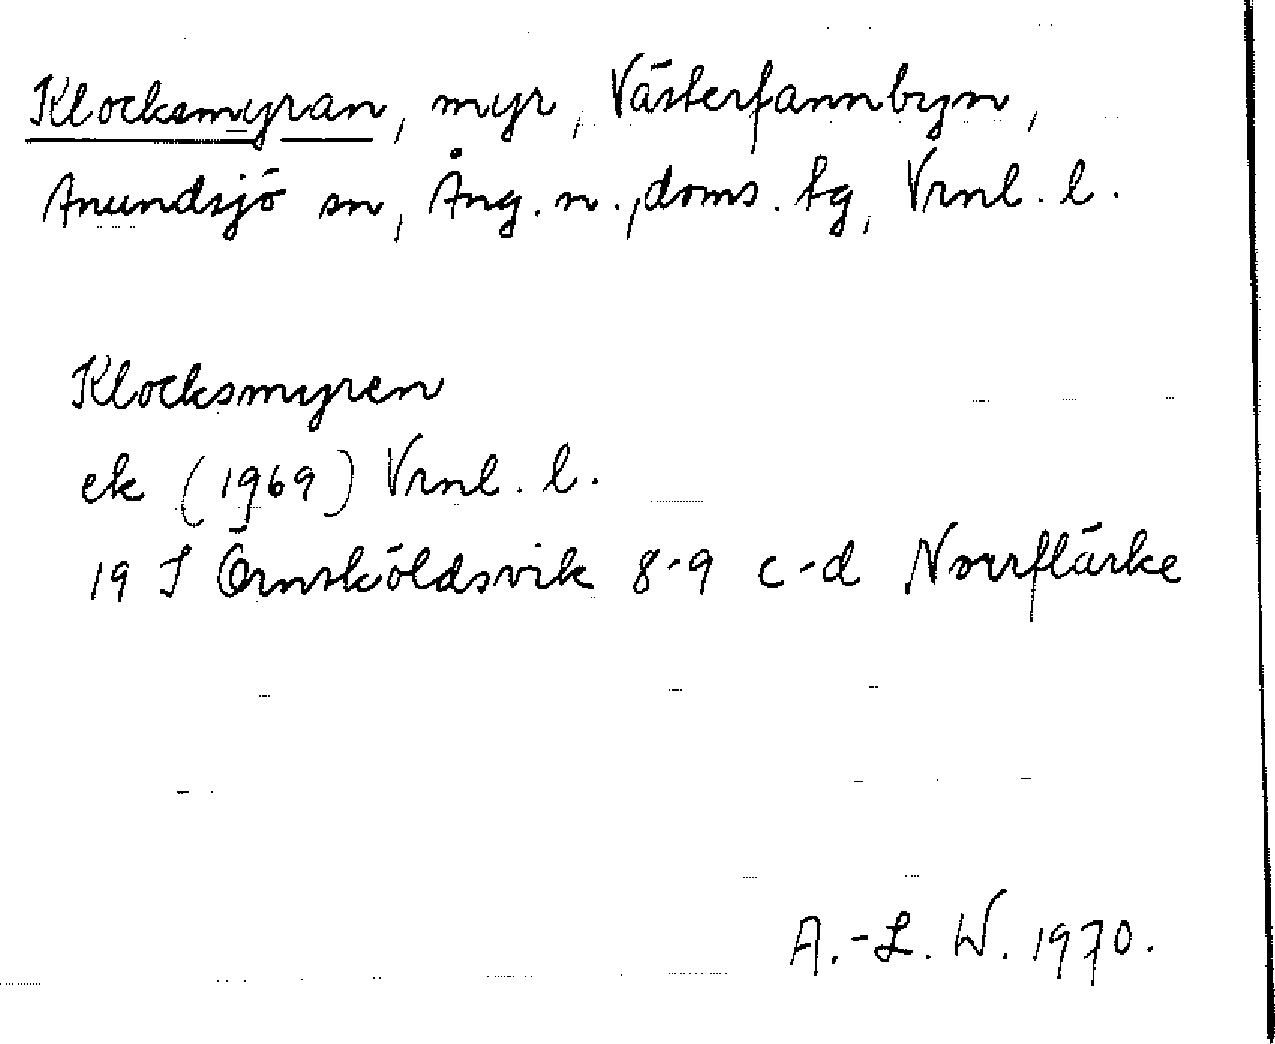 Klocksmyran, myr, Västerfannbyn,
Anundsjö sn, Ång. n., doms. tg, Vrnl. l.
Klocksmyren
ek (1969) Vrnl. l.
19 J Örnsköldsvik 8-9 c-d Norrflärke
A.-L. W. 1970.